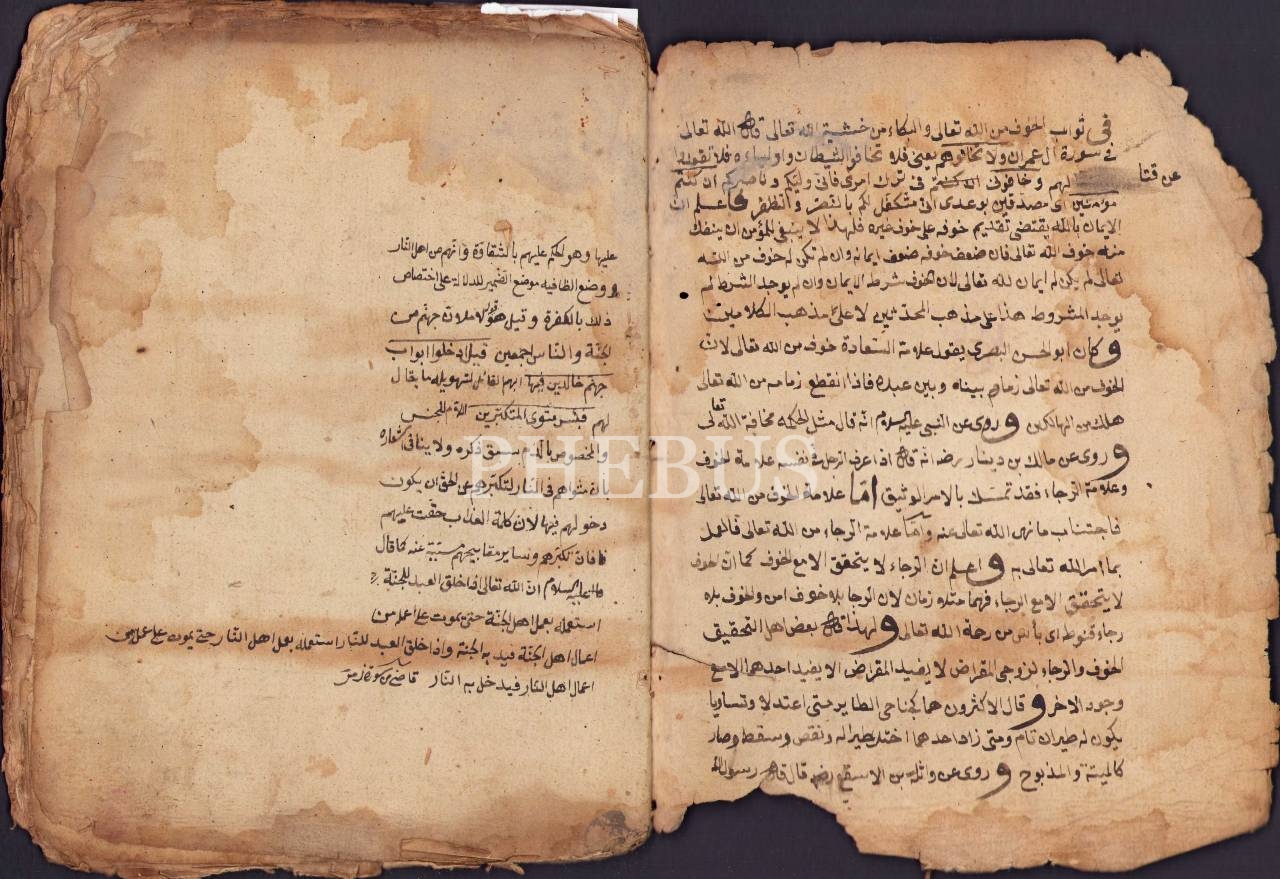 فى ثواب الخوف من الله تعالى والبكاء من خشية الله تعالى قال الله تعالى
فى سورة ال عمران ولا تخافوهم يعنى فلا تخافوا الشيطان واولياءه فلا تقولوا
عن قتا
لهم وخافونى فى ترك امرى فانى وليكم وناصركم ان كنتم
مؤمنين اى مصدقين بوعدى انى متكفل لكم بالنصر والظفر فاعلم ان
الايمان بالله يقتضى تقديم خوفه على خوف غيره فلهذا لا ينبغى للمؤمن ان ينفك
منه خوف الله تعالى فان ضعف خوفه ضعف ايمانه وان لم تكن له خوف من الله
تعالى لم يكن له ايمان لله تعالى لان الخوف شرط الايمان وان لم يوجد الشرط لم
يوجد المشروط هذا على مذهب المحدثين لا على مذهب الكلامين
وكان ابو الحسن البصرى يقول علامة السعادة خوف من الله تعالى لان
الخوف من الله تعالى زمام بيناه وبين عبده فاذا انقطع زمامه من الله تعالى
هلك من الهالكين وروى عن النبى عليه السلام انه قال مثل الحكمه مخافة الله تعالى
وروى عن مالك بن دينار رضه انه قال اذا عرف الرجل فى نفسه علامة الخوف
وعلامة الرجاء فقد تمسك بالامر الوثيق امّا علامة الخوف من الله تعالى
فاجتناب ما نهى الله تعالى عنه وامّا علامة الرجاء من الله تعالى فالعمل
بما امر الله تعالى به واعلم ان الرجاء لا يتحقق الا مع الخوف كما ان الخوف
لا يتحقق الا مع الرجاء فهما متلازمان لان الرجا بلا خوف امن والخوف بلا
رجاء قنوط اى يأس من رحمة الله تعالى ولهذا قال بعض اهل التحقيق
الخوف والرجاء لزوجى المقراض لا يفيد المقراض الا يفيد احدهما الا مع
وجود الاخر وقال الاكثرون هما كجناحى الطاير متى اعتدلا وتساويا
يكون له طيران تام ومتى زاد احدهما اختل طيرانه ونقص وسقط وصار
كالميتة والمذبوح وروى عن واثلة بن الاسقع رضه قال قال رسول الله
عليها وهو لحكم عليهم بالشقاوة وانهم من اهل النار
ووضع الظاهر فيه موضع الضمير للدلالة على اختصاص
ذلك بالكفرة وقيل هو قوله لاملان جهنم من
الجنة والناس اجمعين قيل ادخلوا ابواب
جهنم خالدين فيها ابهم القائل لتهويل ما يقال
لهم فبئس مثوى المتكبرين اللام للجنس
والمخصوص بالذم سبق ذكره ولا ينافى اشعاره
بان مثواهم فى النار لتكبرهم عن الحق ان يكون
دخولهم فيها لان كلمة العذاب حقت عليهم
فان تكبرهم وساير مقابيحهم مسببة عنه كما قال
عليه السلام ان الله تعالى اذا خلق العبد للجنة
استعمله بعمل اهل الجنة حتى يموت على عمل من
اعمال اهل الجنة فيد به الجنة واذا خلق العبد للنار استعمله بعمل اهل النار حتى يموت على عمل من
اعمال اهل النار فيدخل به النار قاضى من سورة زمر
PHEBUS